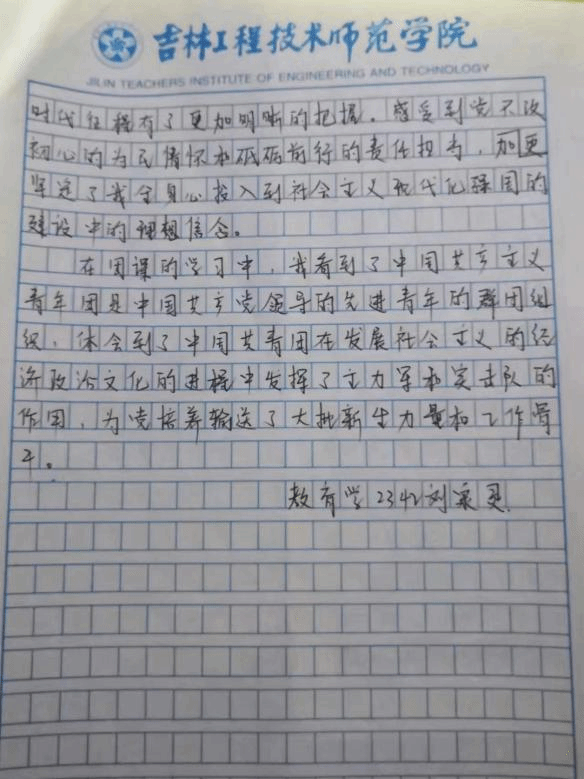 吉林工程技术师范学院
JILIN TEACHERS INSTITUTE OF ENGINEERING AND TECHNOLOGY
时代征程有了更加明晰的把握。感受到党不改
初心的为民情怀和砥砺前行的责任担当，加更
坚定了我全身心投入到社会主义现代化强国的
建设中的理想信念。
在团课的学习中，我看到了中国共产主义
青年团是中国共产党领导的先进青年的群团组
织，体会到了中国共青团在发展社会主义的经
济政治文化的进程中发挥了主力军和突击队的
作用，为党培养输送了大批新生力量和工作骨
干。
教育学2342刘